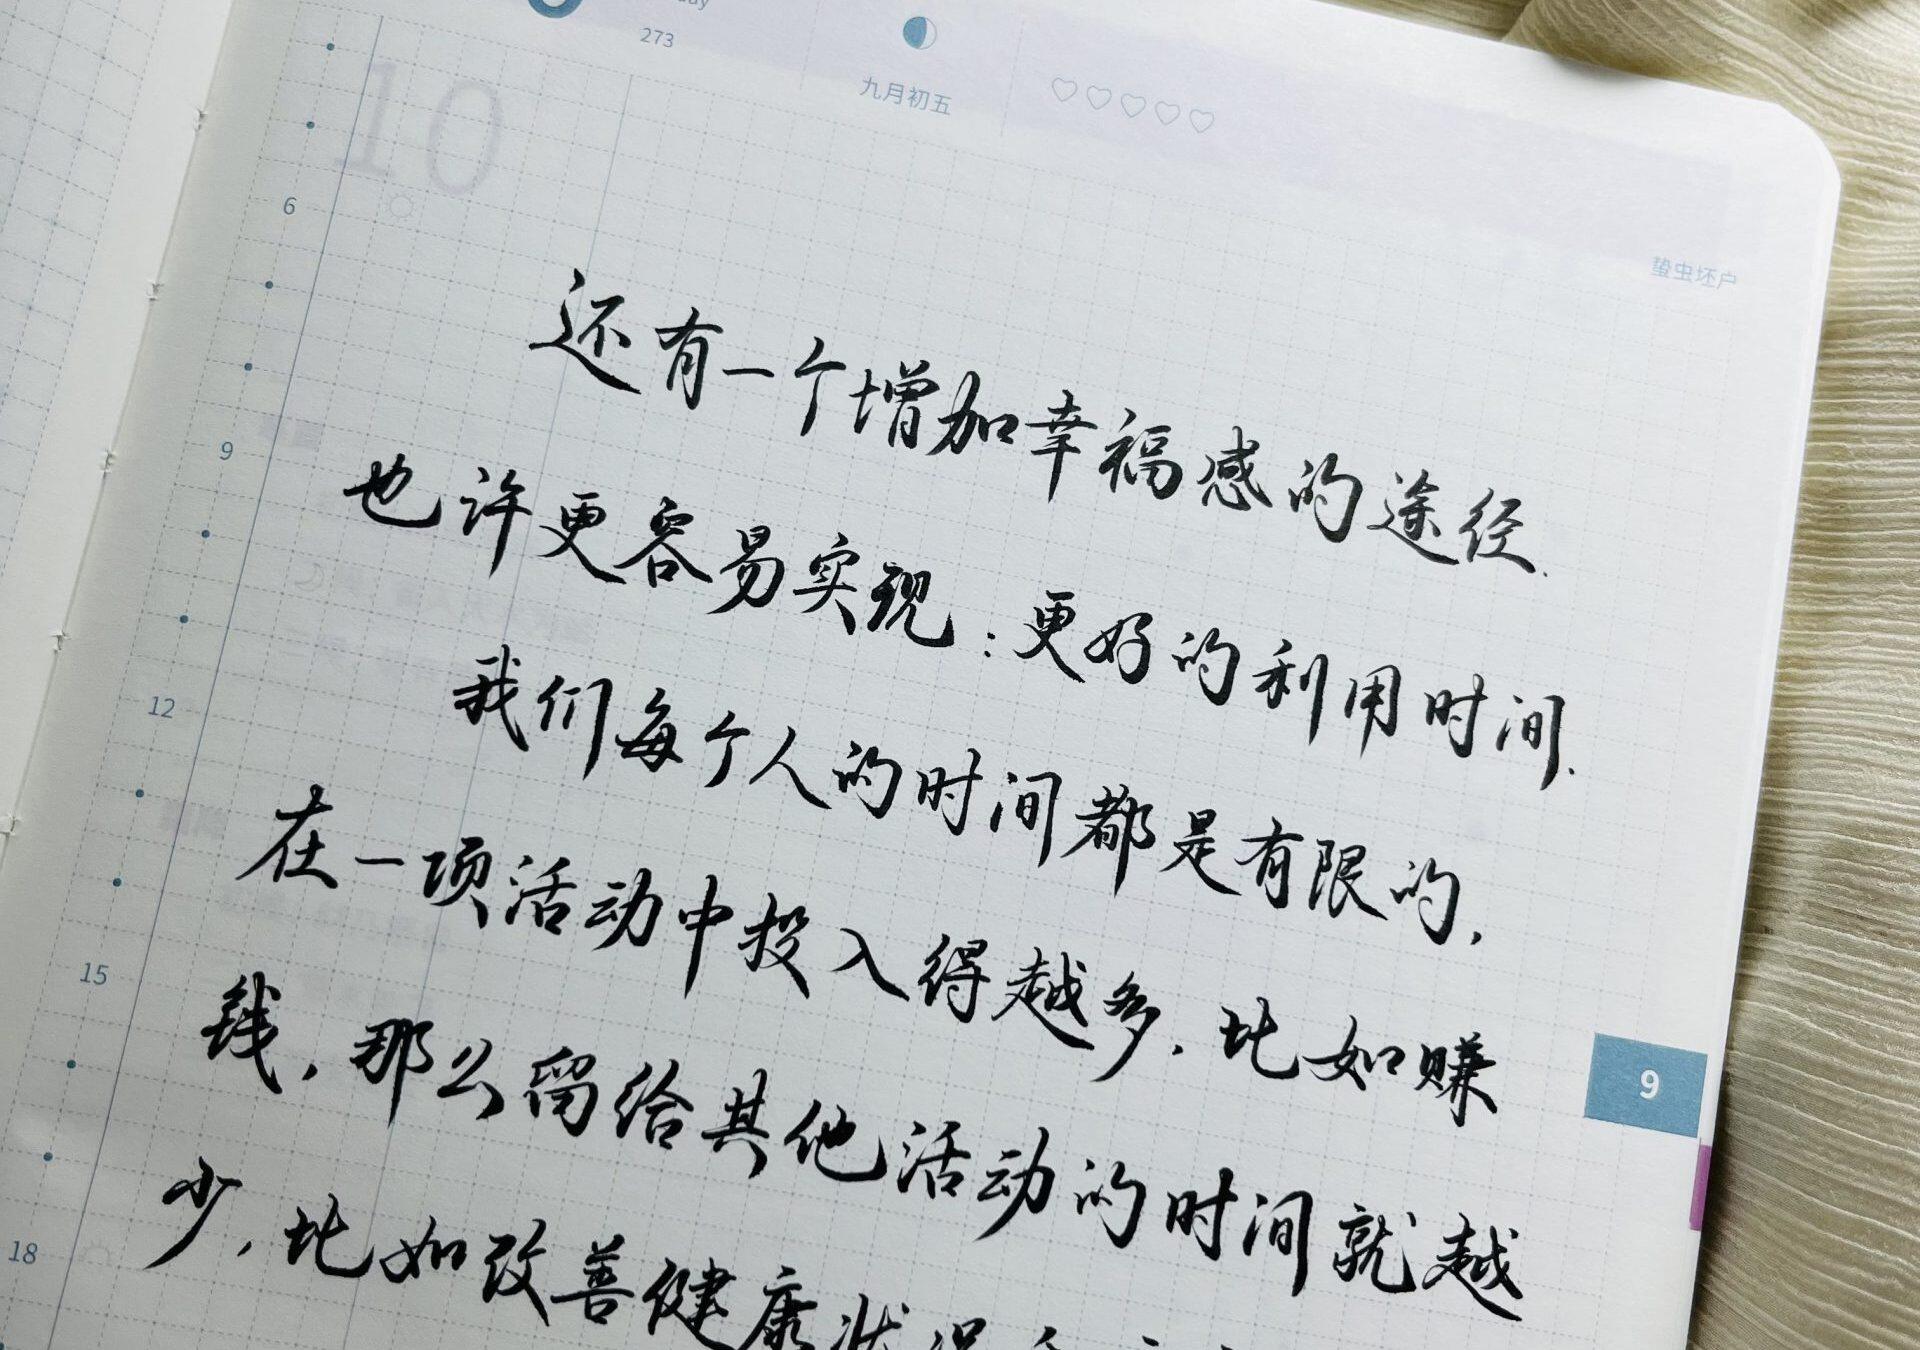 273
九月初五
10
蛰虫坯户
6
9
12
15
18
还有一个增加幸福感的途径.
也许更容易实现:更好的利用时间.
我们每个人的时间都是有限的,
在一项活动中投入得越多,比如赚
钱,那么留给其他活动的时间就越
少,比如改善健康状况
9